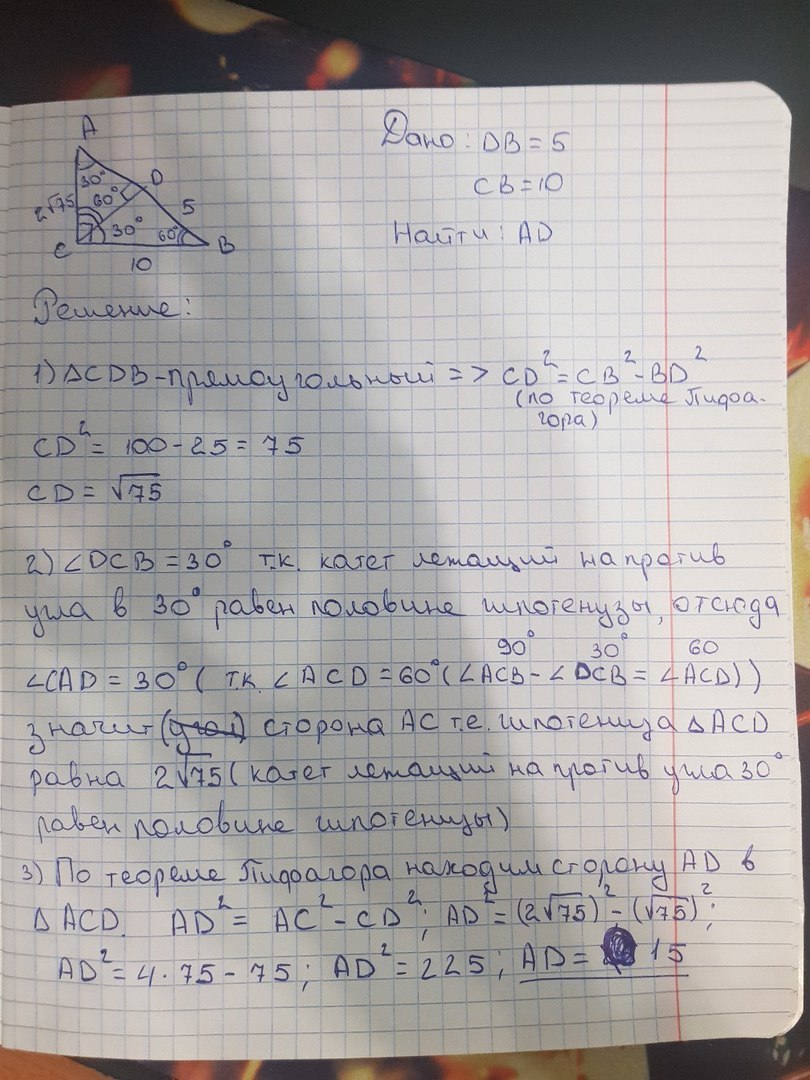 A
30°
D
60°
2√75
5
C
30°
60°
B
10
Дано: DB = 5
CB = 10
Найти: AD
Решение:
1) △CDB - прямоугольный => CD² = CB² - BD²
(по теореме Пифа-
гора)
CD² = 100 - 25 = 75
CD = √75
2) ∠DCB = 30° т.к. катет лежащий на против
угла в 30° равен половине гипотенузы, отсюда
90° 30° 60
∠CAD = 30° (т.к. ∠ACD = 60° (∠ACB - ∠DCB = ∠ACD))
значит сторона AC т.е. гипотенуза △ACD
равна 2√75 (катет лежащий на против угла 30°
равен половине гипотенузы)
3) По теореме Пифагора находим сторону AD в
△ACD. AD² = AC² - CD²; AD² = (2√75)² - (√75)²;
AD² = 4·75 - 75; AD² = 225; AD = 15